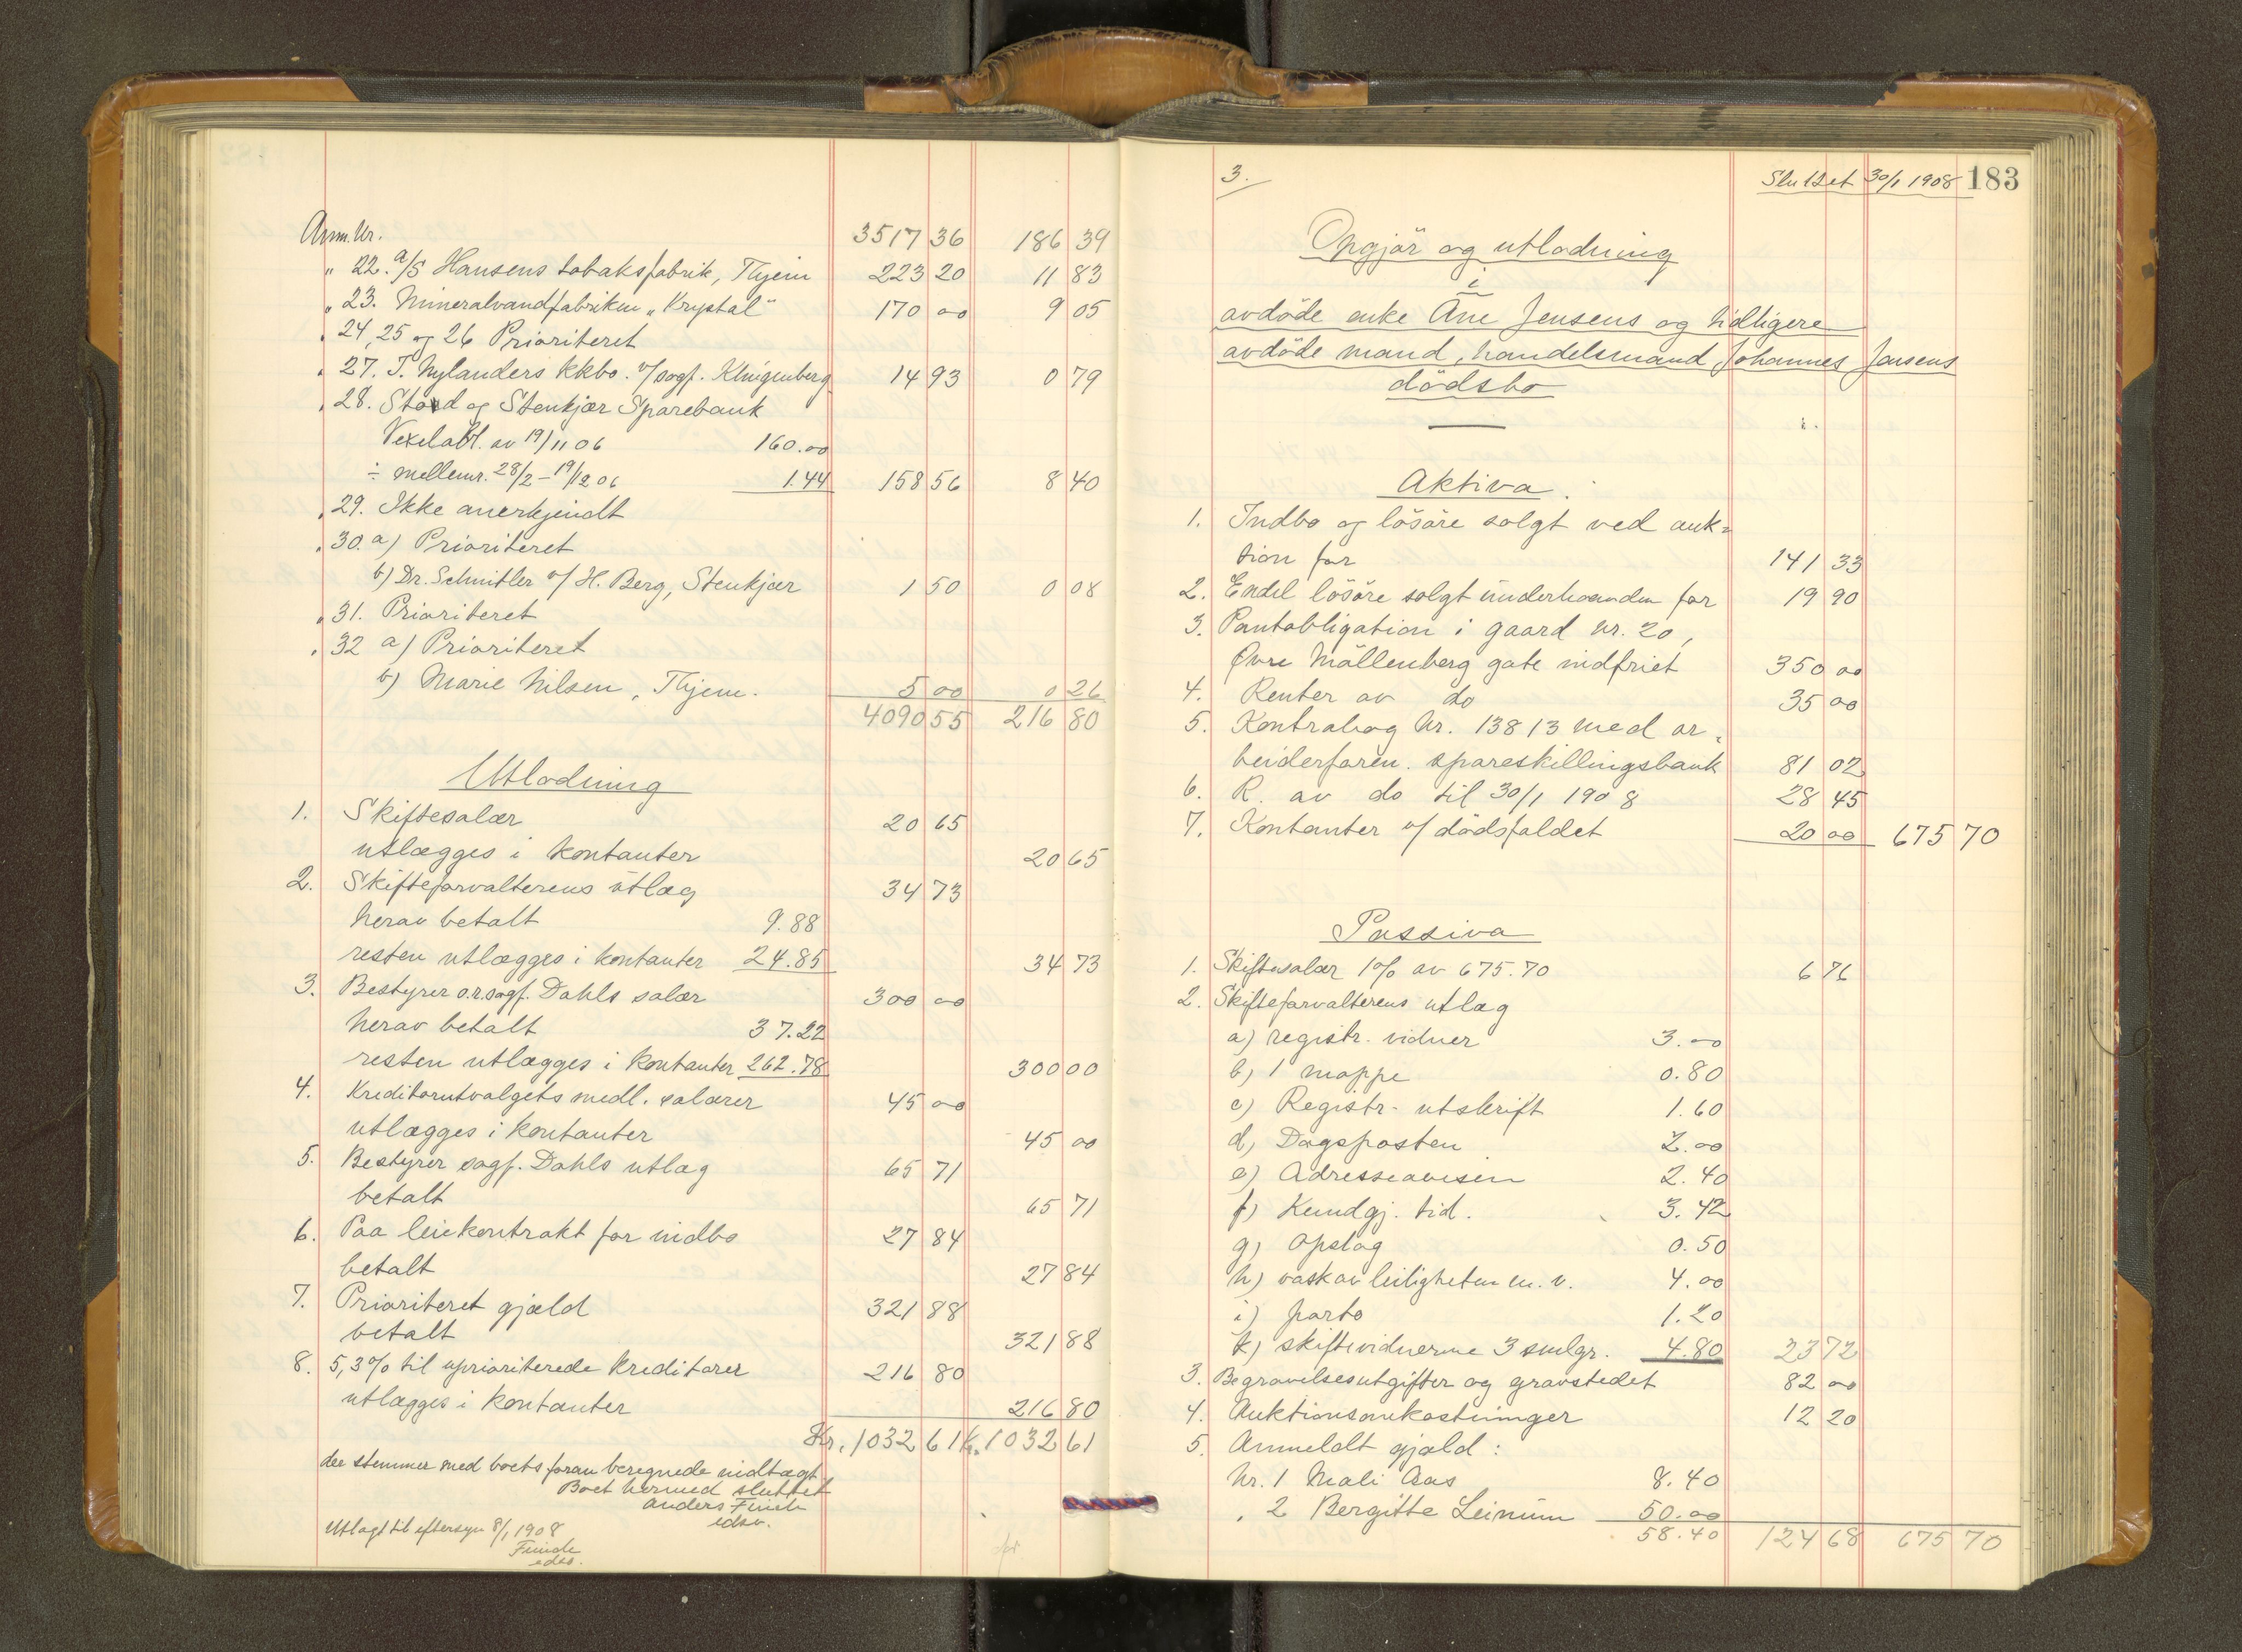 Anm. Nr. 3517 36 186 39
" 22. A/S Hansens tobaksfabrik, Thjem 223 20 11 83
" 23. Mineralvandfabriken "Krystal" 170 00 9 05
" 24, 25 og 26 Prioriteret
" 27. T. Nylanders kkbo. v/ sagf. Klingenberg 14 93 0 79
" 28. Stod og Stenkjær Sparebank
Vexelobl. av 19/11 06 160.00
÷ mellemr. 28/2 - 19/12 06 1.44 158 56 8 40
" 29. Ikke anerkjendt
" 30. a) Prioriteret
b) Dr. Schnitler v/ H. Berg, Stenkjær 1 50 0 08
" 31. Prioriteret
" 32 a) Prioriteret
b) Marie Nilsen, Thjem. 5 00 0 26
4090 55 216 80
Utlodning
1. Skiftesalær 20 65
utlægges i kontanter 20 65
2. Skifteforvalterens utlæg 34 73
herav betalt 9.88
resten utlægges i kontanter 24.85 34 73
3. Bestyrer o.r.sagf. Dahls salær 300 00
herav betalt 37.22
resten utlægges i kontanter 262.78 300 00
4. Kreditorutvalgets medl. salærer 45 00
utlægges i kontanter 45 00
5. Bestyrer sagf. Dahls utlæg 65 71
betalt 65 71
6. Paa leiekontrakt for indbo 27 84
betalt 27 84
7. Prioriteret gjæld 321 88
betalt 321 88
8. 5,3% til uprioriterede kreditorer 216 80
utlægges i kontanter 216 80
Kr. 1032 61 Kr. 1032 61
der stemmer med boets foran beregnede indtægt
Boet hermed sluttet
Anders Finde
edsv.
Utlagt til eftersyn 8/1 1908
Finde
edsv.
3. Sluttet 30/1 1908 183
Opgjör og utlodning
i
avdöde enke Ane Jensens og tidligere
avdöde mand, handelsmand Johannes Jensens
dödsbo
Aktiva.
1. Indbo og lösöre solgt ved auk=
tion for 141 33
2. Endel lösöre solgt underhaanden for 19 90
3. Pantobligation i gaard Nr. 20,
Øvre Möllenberg gate indfriet 350 00
4. Renter av do 35 00
5. Kontrabog Nr. 13813 med ar=
beiderforen. spareskillingsbank 81 02
6. R. av do til 30/1 1908 28 45
7. Kontanter v/ dödsfaldet 20 00 675 70
Passiva
1. Skiftesalær 1% av 675.70 6 76
2. Skifteforvalterens utlæg
a) registr. vidner 3.00
b) 1 mappe 0.80
c) Registr. utskrift 1.60
d) Dagsposten 2.00
e) Adresseavisen 2.40
f) Kundgj. tid. 3.42
g) Opslag 0.50
h) vask av leiligheten m. v. 4.00
i) porto 1.20
k) skiftevidnerne 3 smlgr. 4.80 23 72
3. Begravelsesutgifter og gravstedet 82 00
4. Auktionsomkostninger 12 20
5. Anmeldt gjæld:
Nr. 1 Mali Aas 8.40
" 2 Bergitte Leinum 50.00
58.40 124 68 675 70